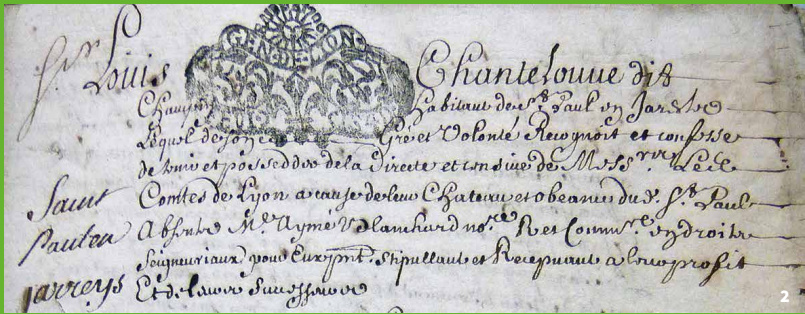 Sr Louis Chantelouue dit
habitant de St Paul en Jarestz
Lequel de son Gré et Volonté Recognoit et confesse
de tenir et posseder de la Directe et censive de Messrs les
Saint
Comtes de Lyon a cause de leur Chateau et obeance du d. St Paul
Paul en
Absents Me Aymé Blanchard nore Ret Commre en droits
Seigneuriaux pour Eux pnt. Stipullant et Recepuant a leur profit
Jarreys
Et de leurs Successeurs
GEN DE LION
2